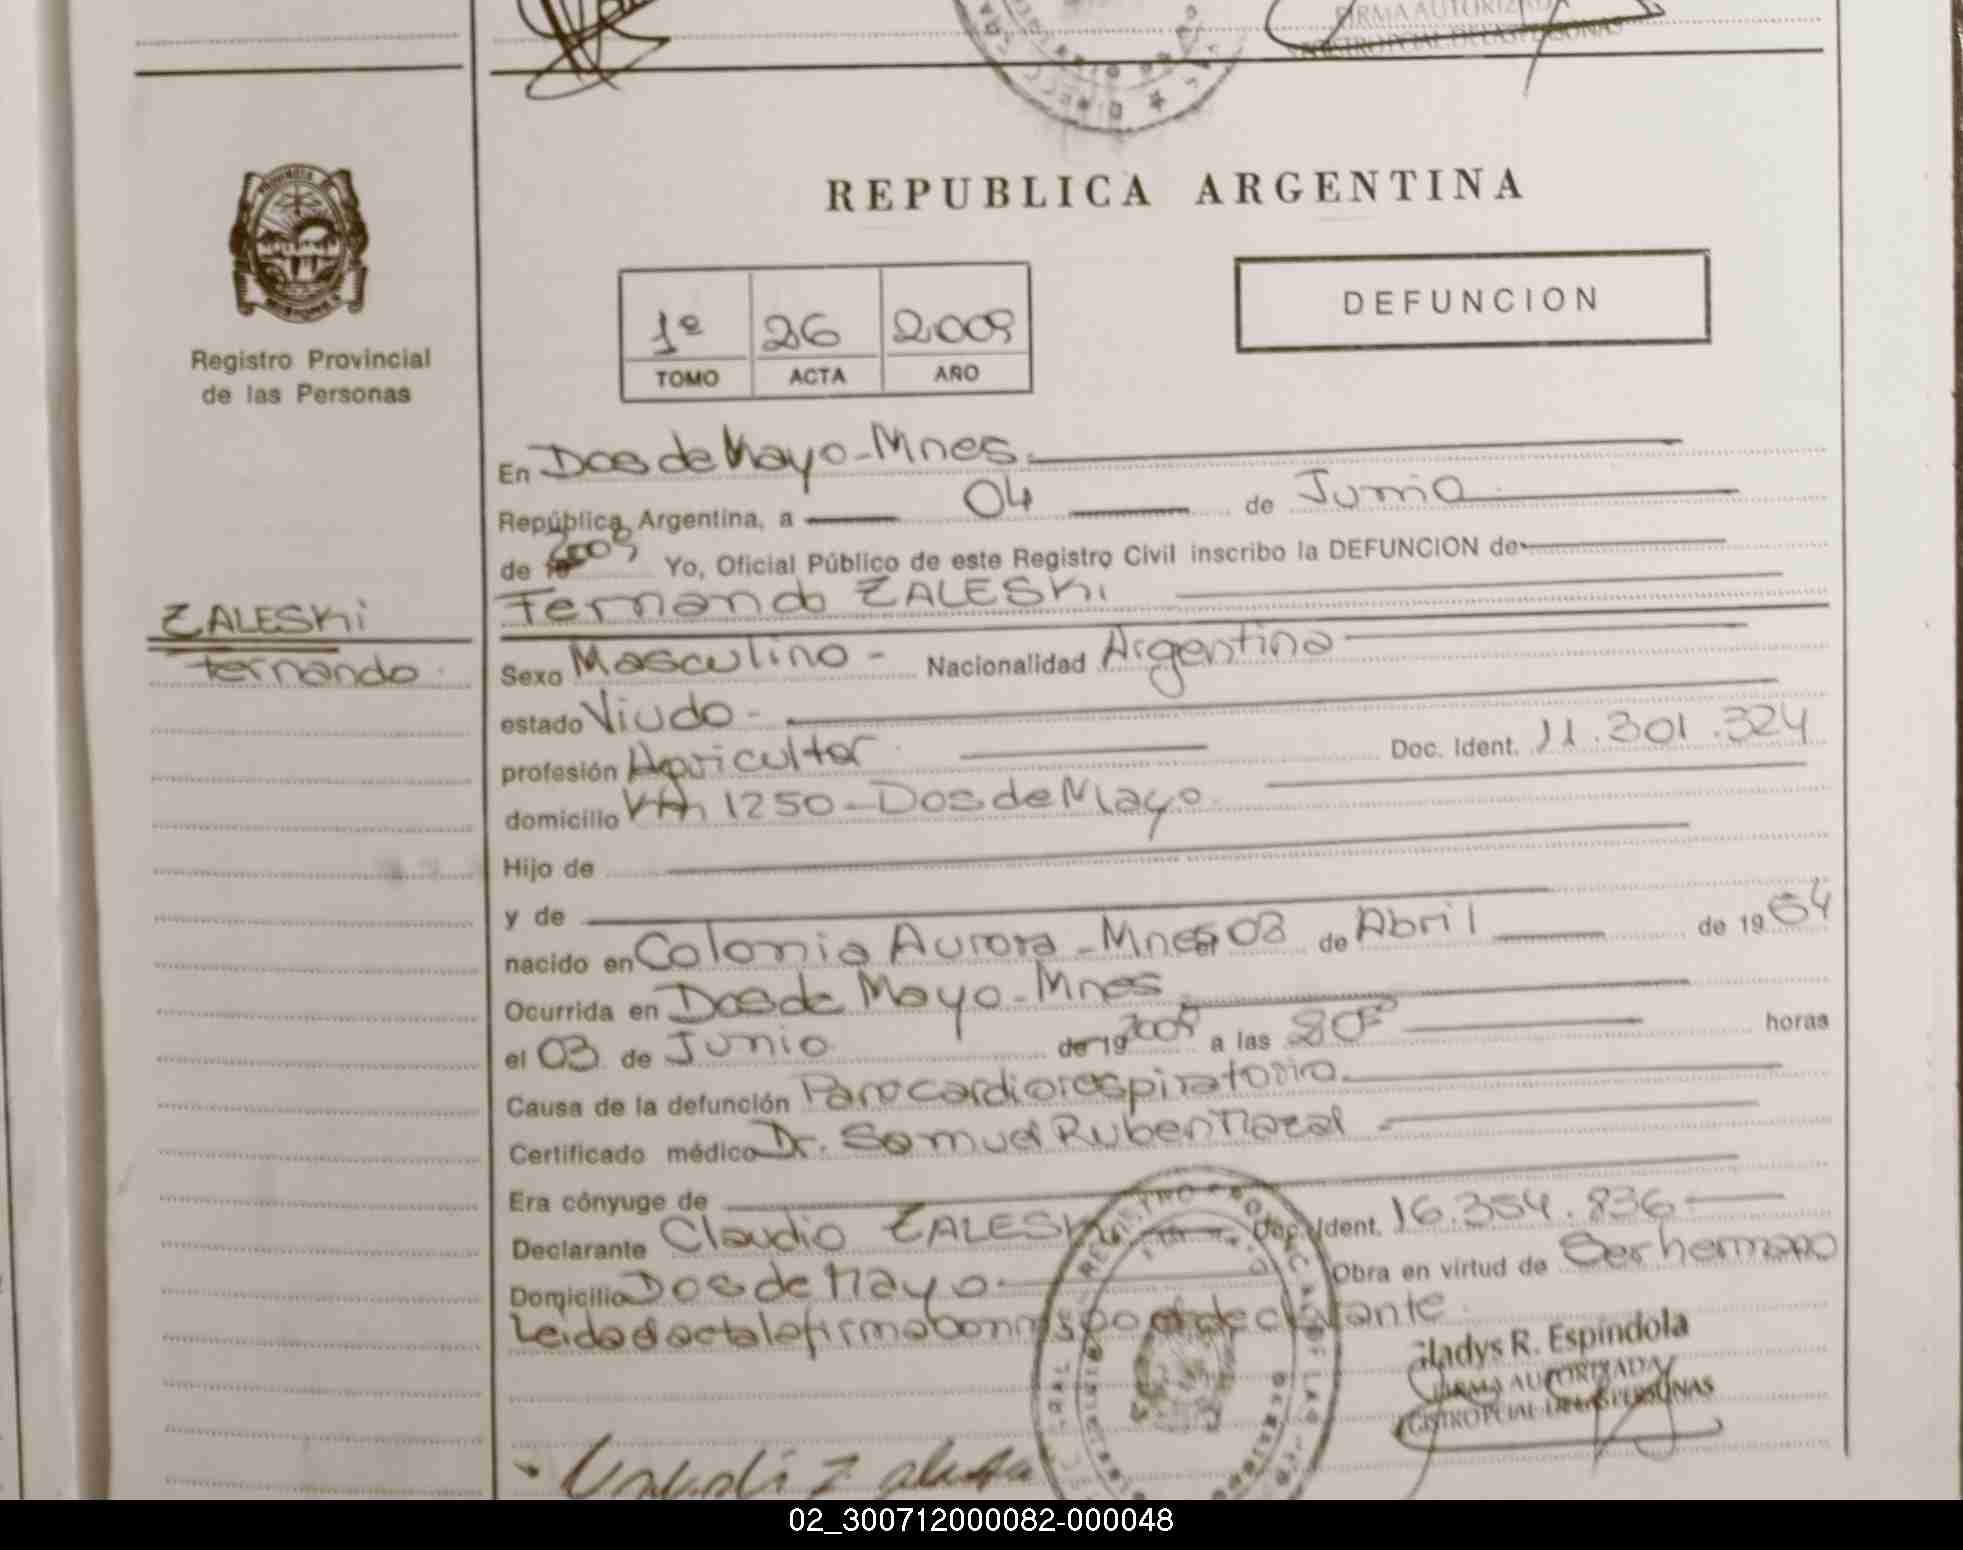 FIRMA AUTORIZADA
REGISTRO PCIAL. DE LAS PERSONAS
REPUBLICA ARGENTINA
DEFUNCION
1º 26 2009
TOMO ACTA AÑO
Registro Provincial
de las Personas
En Dos de Mayo - Mnes.
República Argentina, a 04 de Junio
de 2009 Yo, Oficial Público de este Registro Civil inscribo la DEFUNCION de
Fernando ZALESKi
ZALESKi
Fernando
Sexo Masculino - Nacionalidad Argentina
estado Viudo -
profesión Agricultor Doc. Ident. 11.301.324
domicilio Km 1250 - Dos de Mayo
Hijo de
y de
nacido en Colonia Aurora - Mnes el 03 de Abril de 19 54
Ocurrida en Dos de Mayo - Mnes
el 03 de Junio de 19 2009 a las horas
Causa de la defunción Paro cardiorespiratorio
Certificado médico Dr. Samuel Ruben
Era cónyuge de
Declarante Claudio ZALESKi Doc. Ident. 16.354.836
Domicilio Dos de Mayo Obra en virtud de Ser hermano
Leida el acta la firma declarante
Gladys R. Espindola
FIRMA AUTORIZADA
REGISTRO PCIAL. DE LAS PERSONAS
02_300712000082-000048